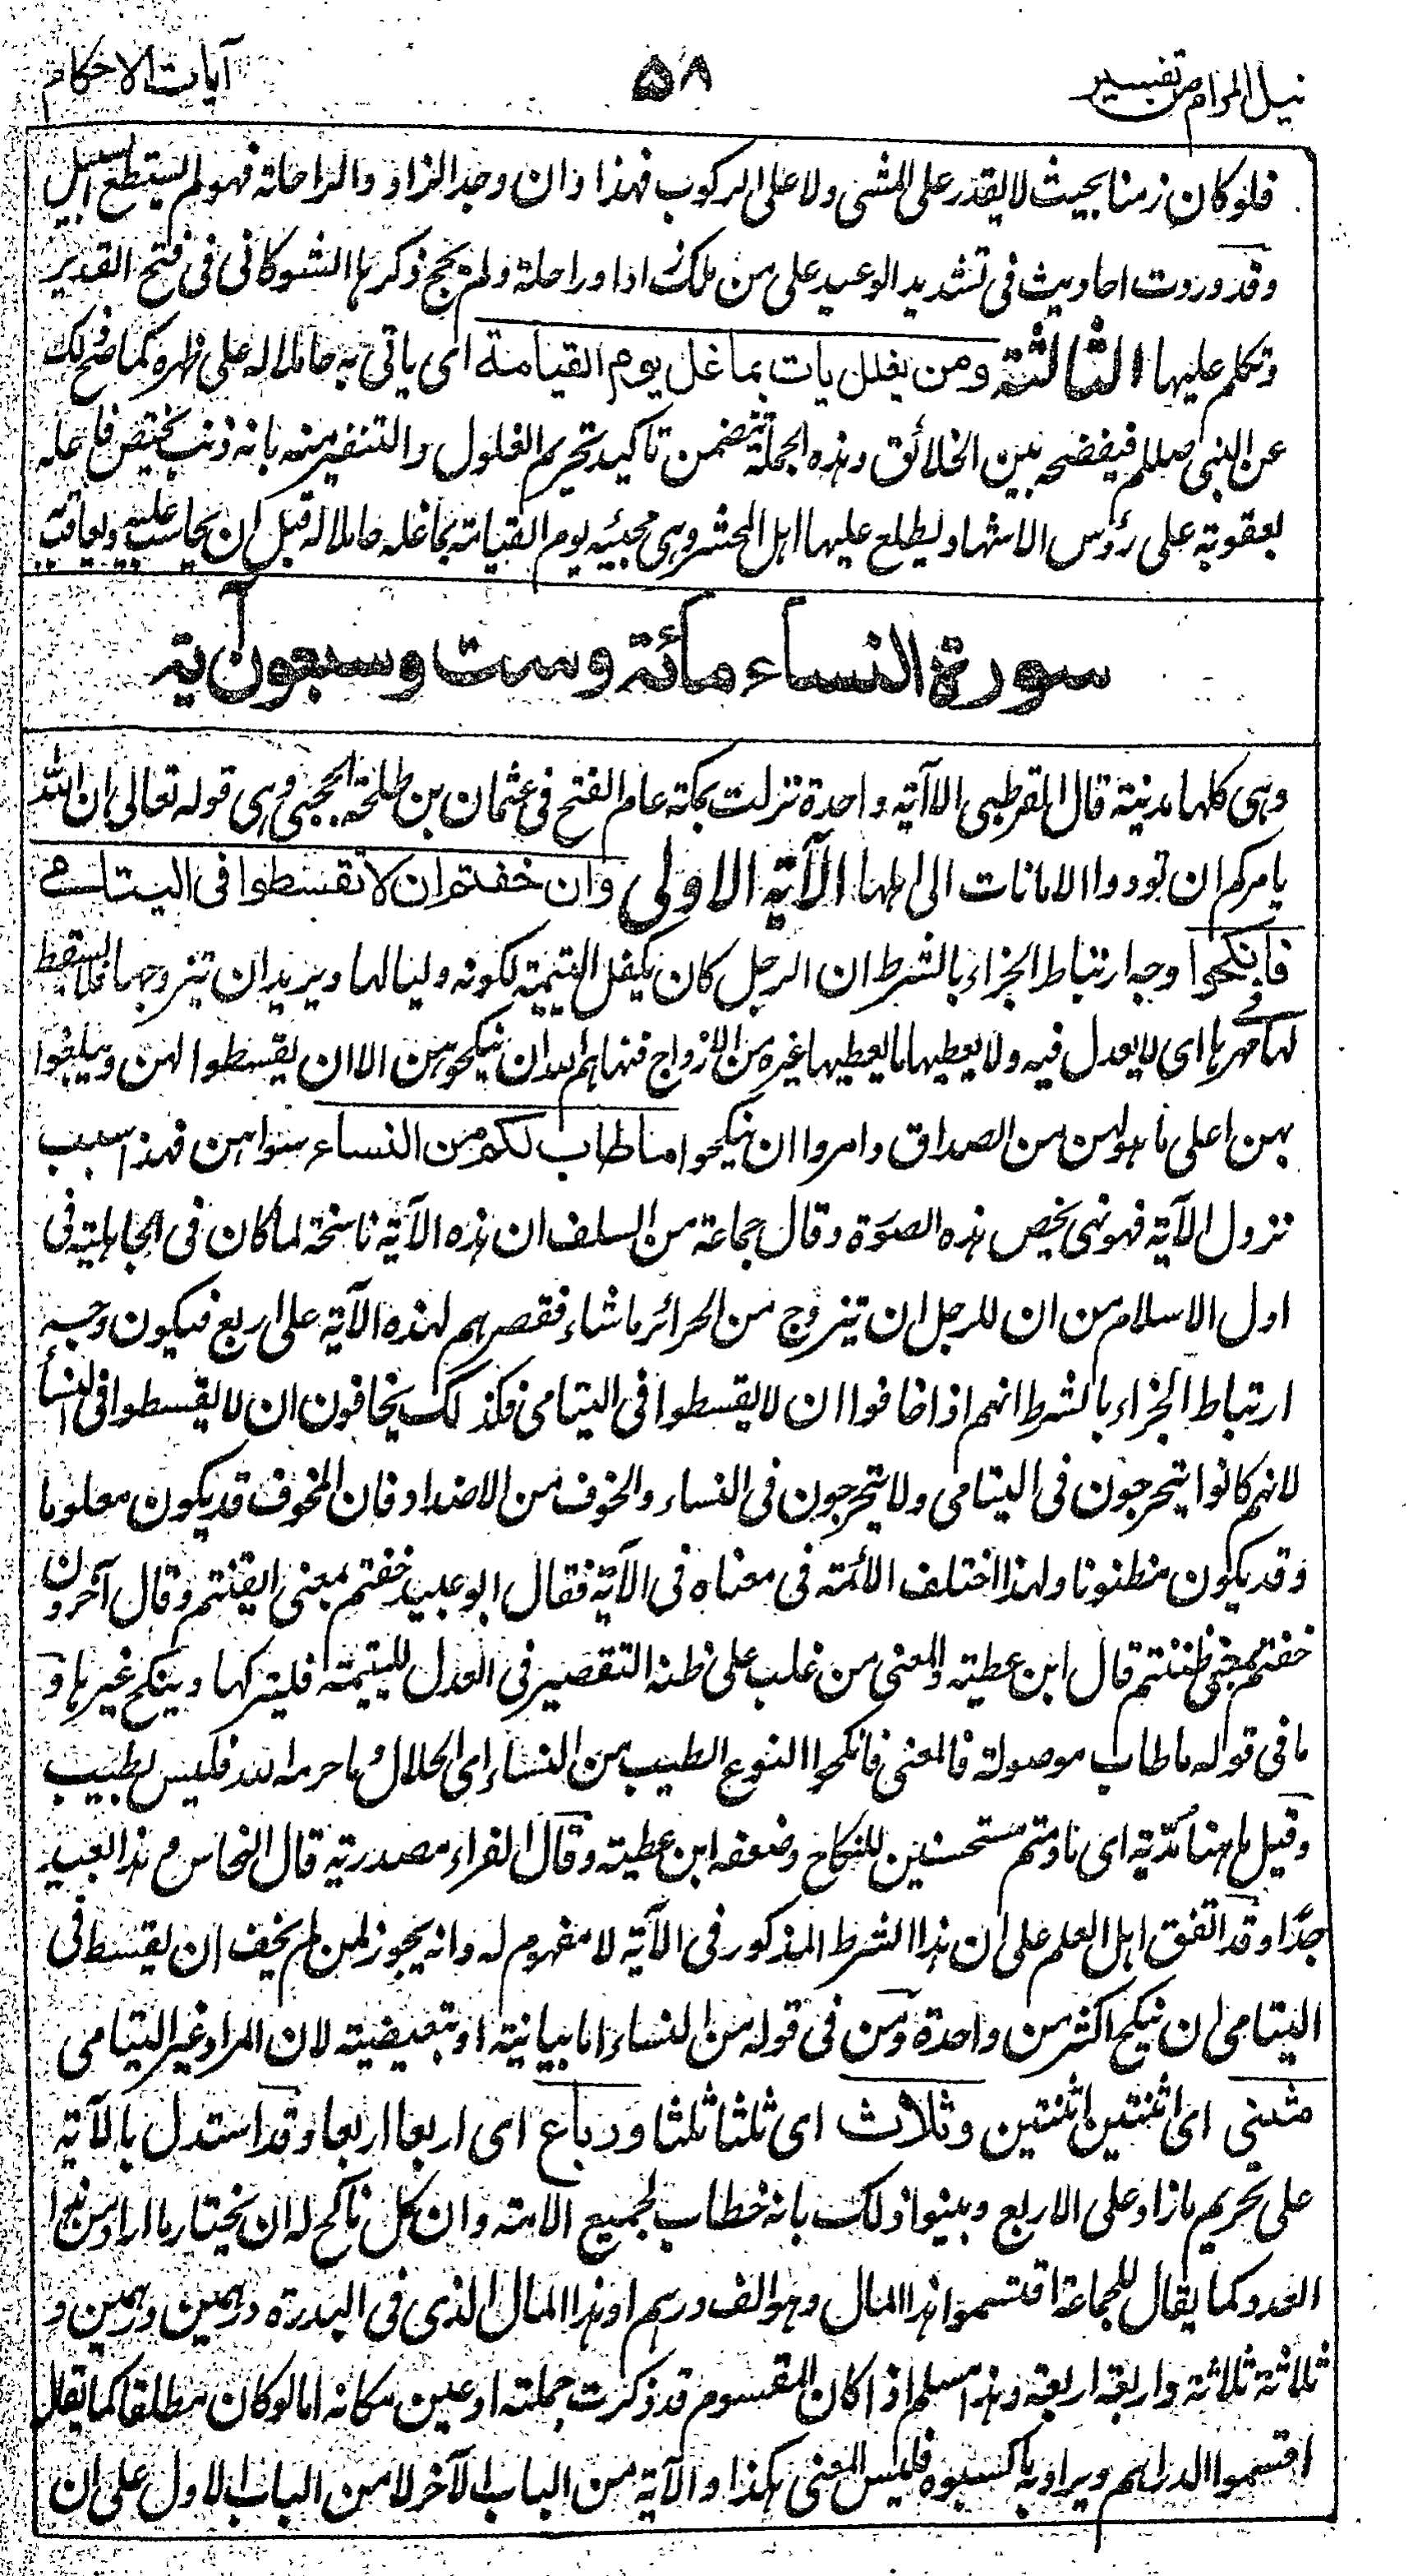 نيل المرام من تفسير ٥٨ آيات الاحكام
فلو كان زمنا بحيث لا يقدر على المشى ولا على الركوب فهذا وان وجد الزاد والراحلة فهو لم يستطع السبيل
وقد وردت احاديث فى تشديد الوعيد على من ملك زادا وراحلة ولم يحج ذكرها الشوكانى فى فتح القدير
وتكلم عليها الثالثة ومن يغلل يات بما غل يوم القيامة اى ياتى به حاملا له على ظهره كما صح ذلك
عن النبى صللم فيفضحه بين الخلائق وهذه الجملة تتضمن تاكيد تحريم الغلول والتنفير منه بانه ذنب يختص فاعله
بعقوبة على رؤس الاشهاد يطلع عليها اهل المحشر وهى مجيئه يوم القيامة بما غله حاملا له قبل ان يحاسب عليه ويعاقب عليه
سورة النساء مائة وست وسبعون آية
وهى كلها مدنية قال القرطبى الا آية واحدة نزلت بمكة عام الفتح فى عثمان بن طلحة الحجبى وهى قوله تعالى ان الله
يامركم ان تودوا الامانات الى اهلها الآية الاولى وان خفتم ان لا تقسطوا فى اليتامى
فانكحوا وجه ارتباط الجزاء بالشرط ان الرجل كان يكفل اليتيمة لكونه وليا لها ويريد ان يتزوجها فلا يقسط
لها فى مهرها اى لا يعدل فيه ولا يعطيها ما يعطيها غيره من الازواج فنهاهم الله ان ينكحوهن الا ان يقسطوا لهن ويبلغوا
بهن اعلى ما هو لهن من الصداق وامروا ان ينكحوا ما طاب لكم من النساء سواهن فهذا سبب
نزول الآية فهو نهى يخص هذه الصورة وقال جماعة من السلف ان هذه الآية ناسخة لما كان فى الجاهلية فى
اول الاسلام من ان للرجل ان يتزوج من الحرائر ما شاء فقصرهم لهذه الآية على اربع فيكون وجه
ارتباط الجزاء بالشرط انهم اذا خافوا ان لا يقسطوا فى اليتامى فكذلك يخافون ان لا يقسطوا فى النسأ
لانهم كانوا يتحرجون فى اليتامى ولا يتحرجون فى النساء والخوف من الاضداد فان المخوف قد يكون معلوما
وقد يكون مظنونا ولهذا اختلف الأئمة فى معناه فى الآية فقال ابو عبيد خفتم بمعنى ايقنتم وقال آخرون
خفتم بمعنى ظننتم قال ابن عطية والمعنى من غلب على ظنه التقصير فى العدل لليتيمة فليتركها وينكح غيرها و
ما فى قوله ما طاب موصولة فالمعنى فانكحوا النوع الطيب من النساء اى الحلال وما حرمه الله فليس بطيب
وقيل ما هنا مدّية اى ما دمتم مستحسنين للنكاح وضعفه ابن عطية وقال الفراء مصدرية قال النحاس و هذا العبيد
جدّا وقد اتفق اهل العلم على ان هذا الشرط المذكور فى الآية لا مفهوم له وانه يجوز لمن لم يخف ان يقسط فى
اليتامى ان ينكح اكثر من واحدة ومن فى قوله من النساء اما بيانية او تبعيضية لان المراد غير اليتامى
مثنى اى اثنتين اثنتين وثلاث اى ثلثا ثلثا ورباع اى اربعا اربعا وقد استدل بالآية
على تحريم ما زاد على الاربع وبينوا ذلك بانه خطاب لجميع الامة وان كل ناكح له ان يختار ما اراد من هذا
العدد كما يقال للجماعة اقتسموا هذا المال وهو الف درهم او هذا المال الذى فى البدرة درهمين درهمين و
ثلاثة ثلاثة واربعة اربعة وهذا مسلم اذا كان المقسوم قد ذكرت جملته او عين مكانه اما لو كان مطلقا كما يقال
اقتسموا الدراهم ويراد به ما كسبوه فليس المعنى هكذا والآية من الباب الآخر لا من الباب الاول على ان